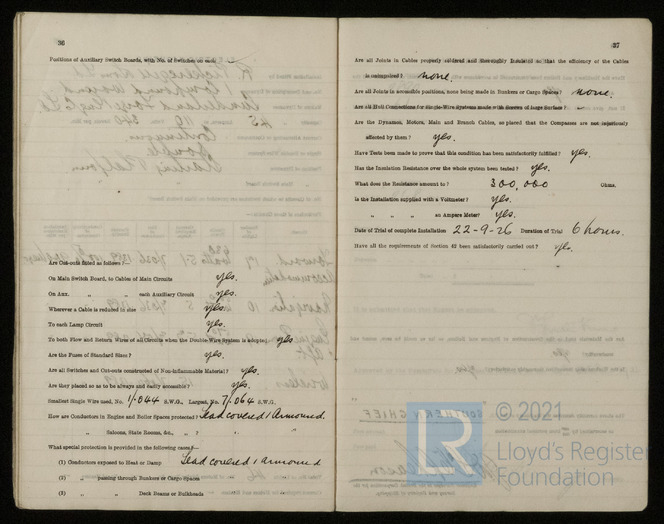 36
Positions of Auxiliary Switch Boards, with No. of Switches on each
Are Cut-outs fitted as follows:—
On Main Switch Board, to Cables of Main Circuits yes.
On Aux. " " each Auxiliary Circuit yes.
Wherever a Cable is reduced in size yes.
To each Lamp Circuit yes.
To both Flow and Return Wires of all Circuits when the Double-Wire System is adopted yes
Are the Fuses of Standard Sizes? yes.
Are all Switches and Cut-outs constructed of Non-inflammable Material? yes.
Are they placed so as to be always and easily accessible? yes.
Smallest Single Wire used, No. 1/.044 S.W.G., Largest, No. 7/.064 S.W.G.
How are Conductors in Engine and Boiler Spaces protected? Lead covered & Armoured.
" Saloons, State Rooms, &c., " ? "
What special protection is provided in the following cases:—
(1) Conductors exposed to Heat or Damp Lead covered & armoured
(2) " passing through Bunkers or Cargo Spaces
(3) " " Deck Beams or Bulkheads
37
Are all Joints in Cables properly soldered and thoroughly insulated so that the efficiency of the Cables
is unimpaired? none.
Are all Joints in accessible positions, none being made in Bunkers or Cargo Spaces? none.
Are all Hull Connections for Single-Wire Systems made with Screws of large Surface? –
Are the Dynamos, Motors, Main and Branch Cables, so placed that the Compasses are not injuriously
affected by them? yes.
Have Tests been made to prove that this condition has been satisfactorily fulfilled? yes.
Has the Insulation Resistance over the whole system been tested? yes.
What does the Resistance amount to? 300,000 Ohms.
Is the Installation supplied with a Voltmeter? yes.
" " " an Ampere Meter? yes.
Date of Trial of complete Installation 22-9-26 Duration of Trial 6 hours.
Have all the requirements of Section 42 been satisfactorily carried out? yes.
© 2021
LR
Lloyd's Register
Foundation